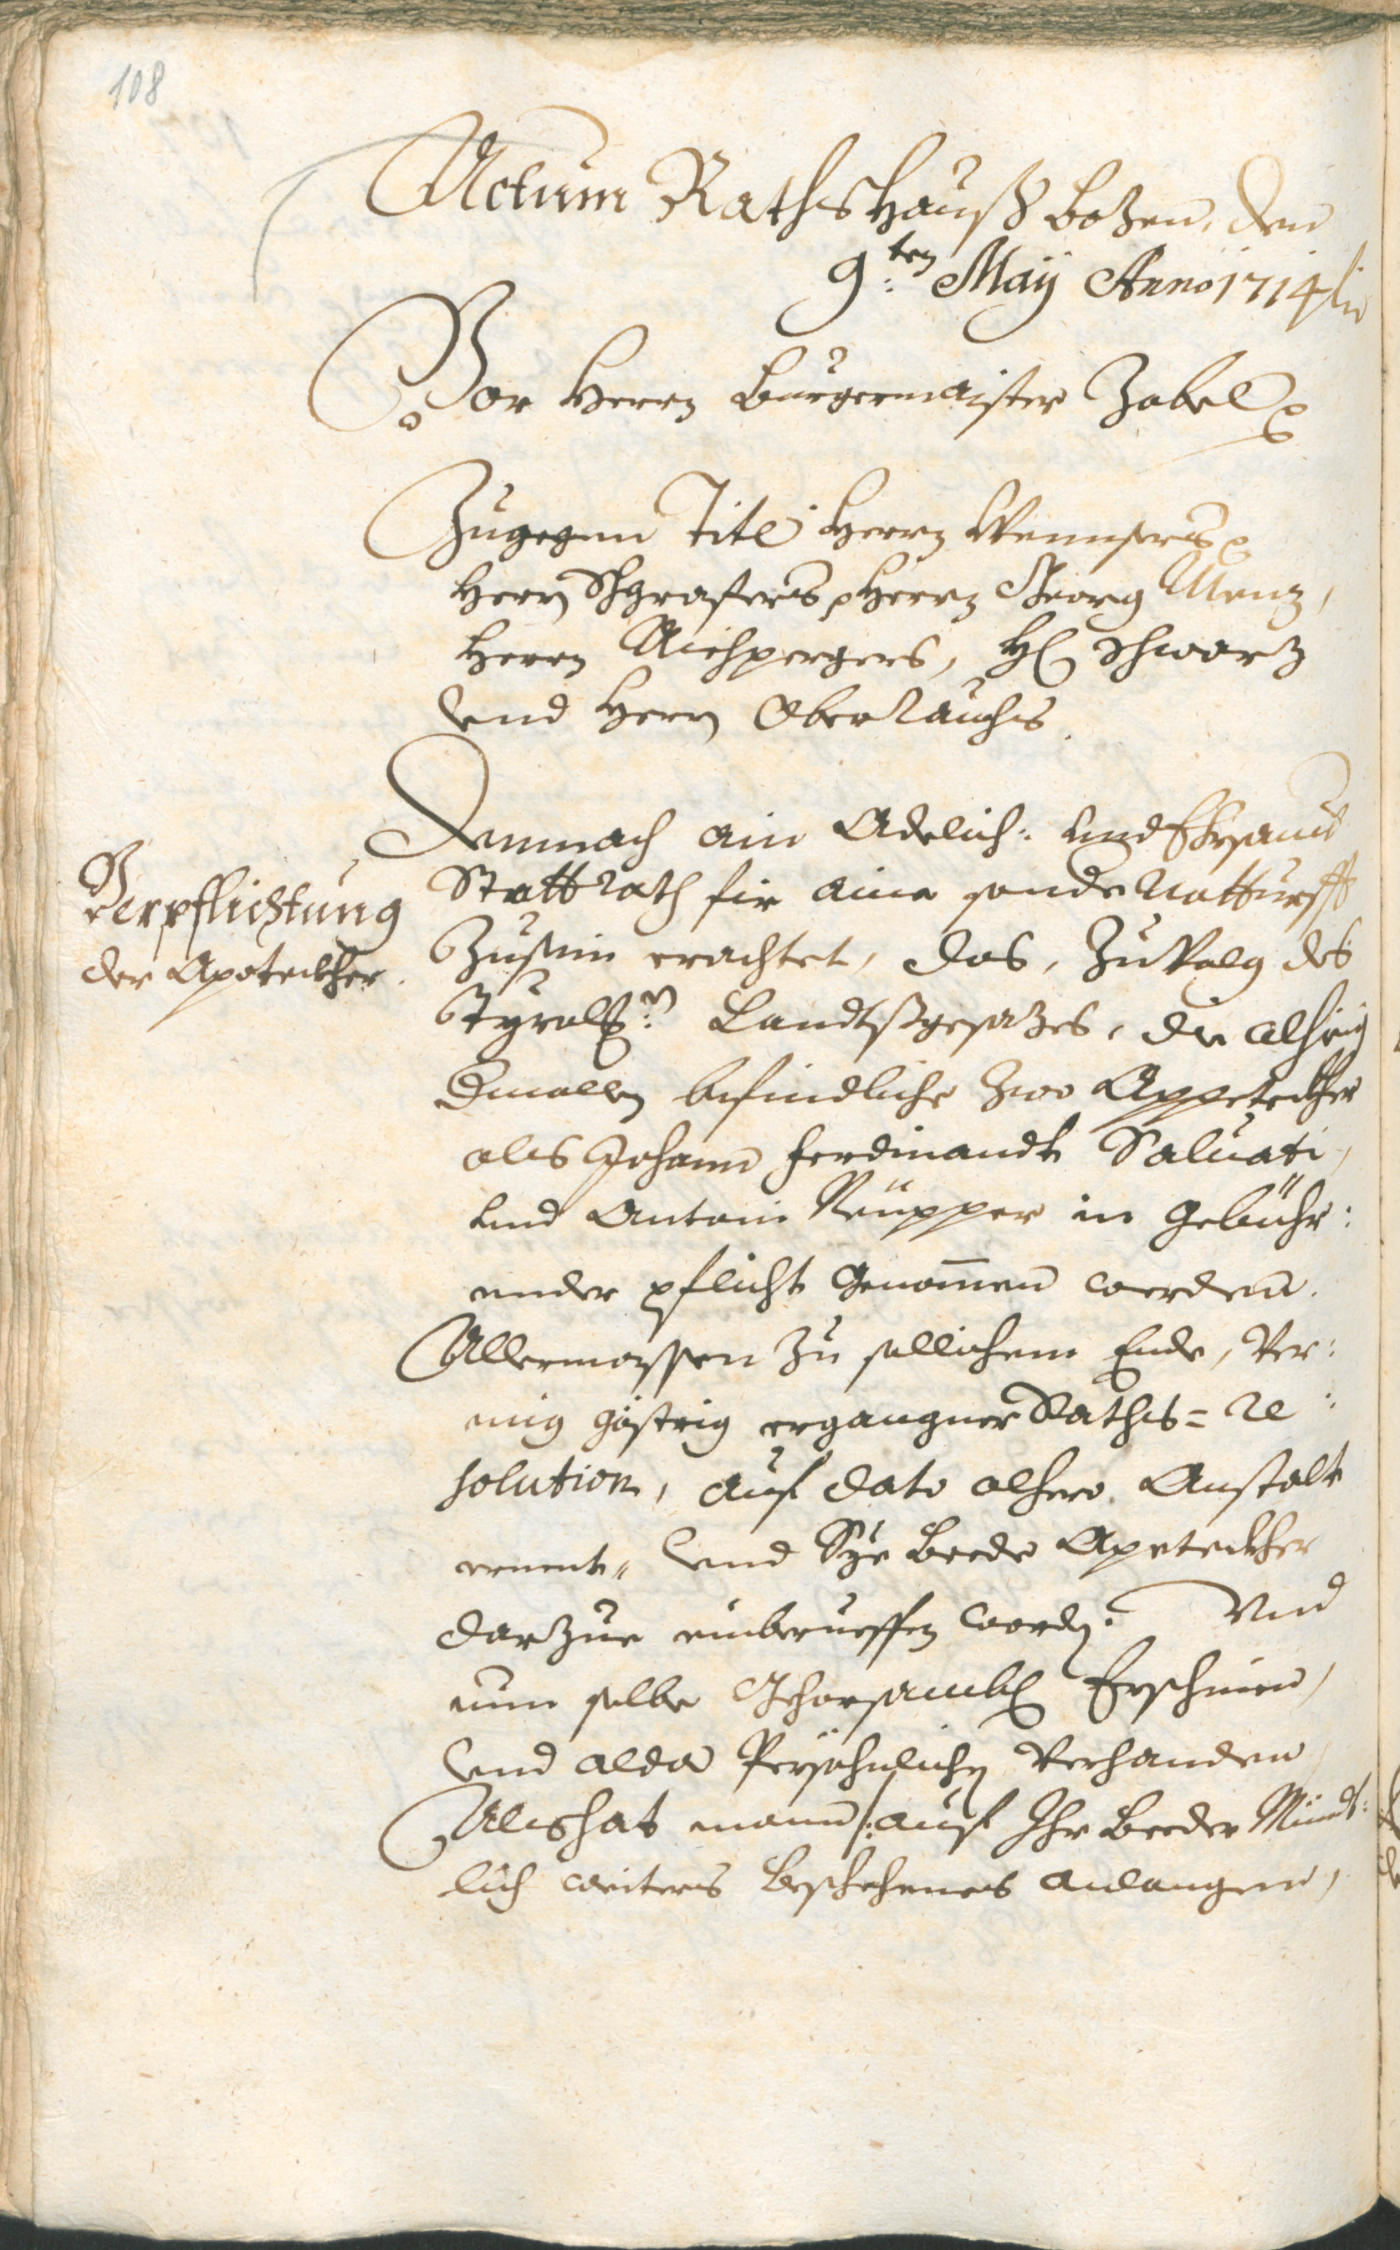 108
Actum Rathshauß Bozen, den
9.ten Maÿ Anno 1714
Vor Herrn Burgermaister Zobel
Zugegen Titl Herrn Wennsers
Herrn Schgrafers, Herrn Georg Menz,
Herrn Aichpergers, H. Schwarz
vnd Herrn Oberrauchs
Verpflichtung
der Apoteckher.
Demnach ain Adelich: vnd Ehrsamb
Statt Rath für aine sonde Notturfft
Zusein erachtet, das, Zuvolg des
Tyroll: Landtßgesazes, die alhieig
Dmallen befindliche zwo Appoteckher
als Johann Ferdinandt Saluati,
vnd Antoni Rüpper in Gebühr:
ender pflicht Genommen werden.
Allermassen zu sollichem Ende, Ver:
mig göstrig ergangner Raths= Re:
solution, auf dato alhero Anstalt
ernent, vnd Sye beede Apoteckher
darzue einberueffen worden. Vnd
nun selbe Gehorsambl Erschinen,
vnd alda Persöhnlichen Verhanden,
Als hat mann /: auf Ihr beeder Mündt:
lich weiters beschehenes anlangen,